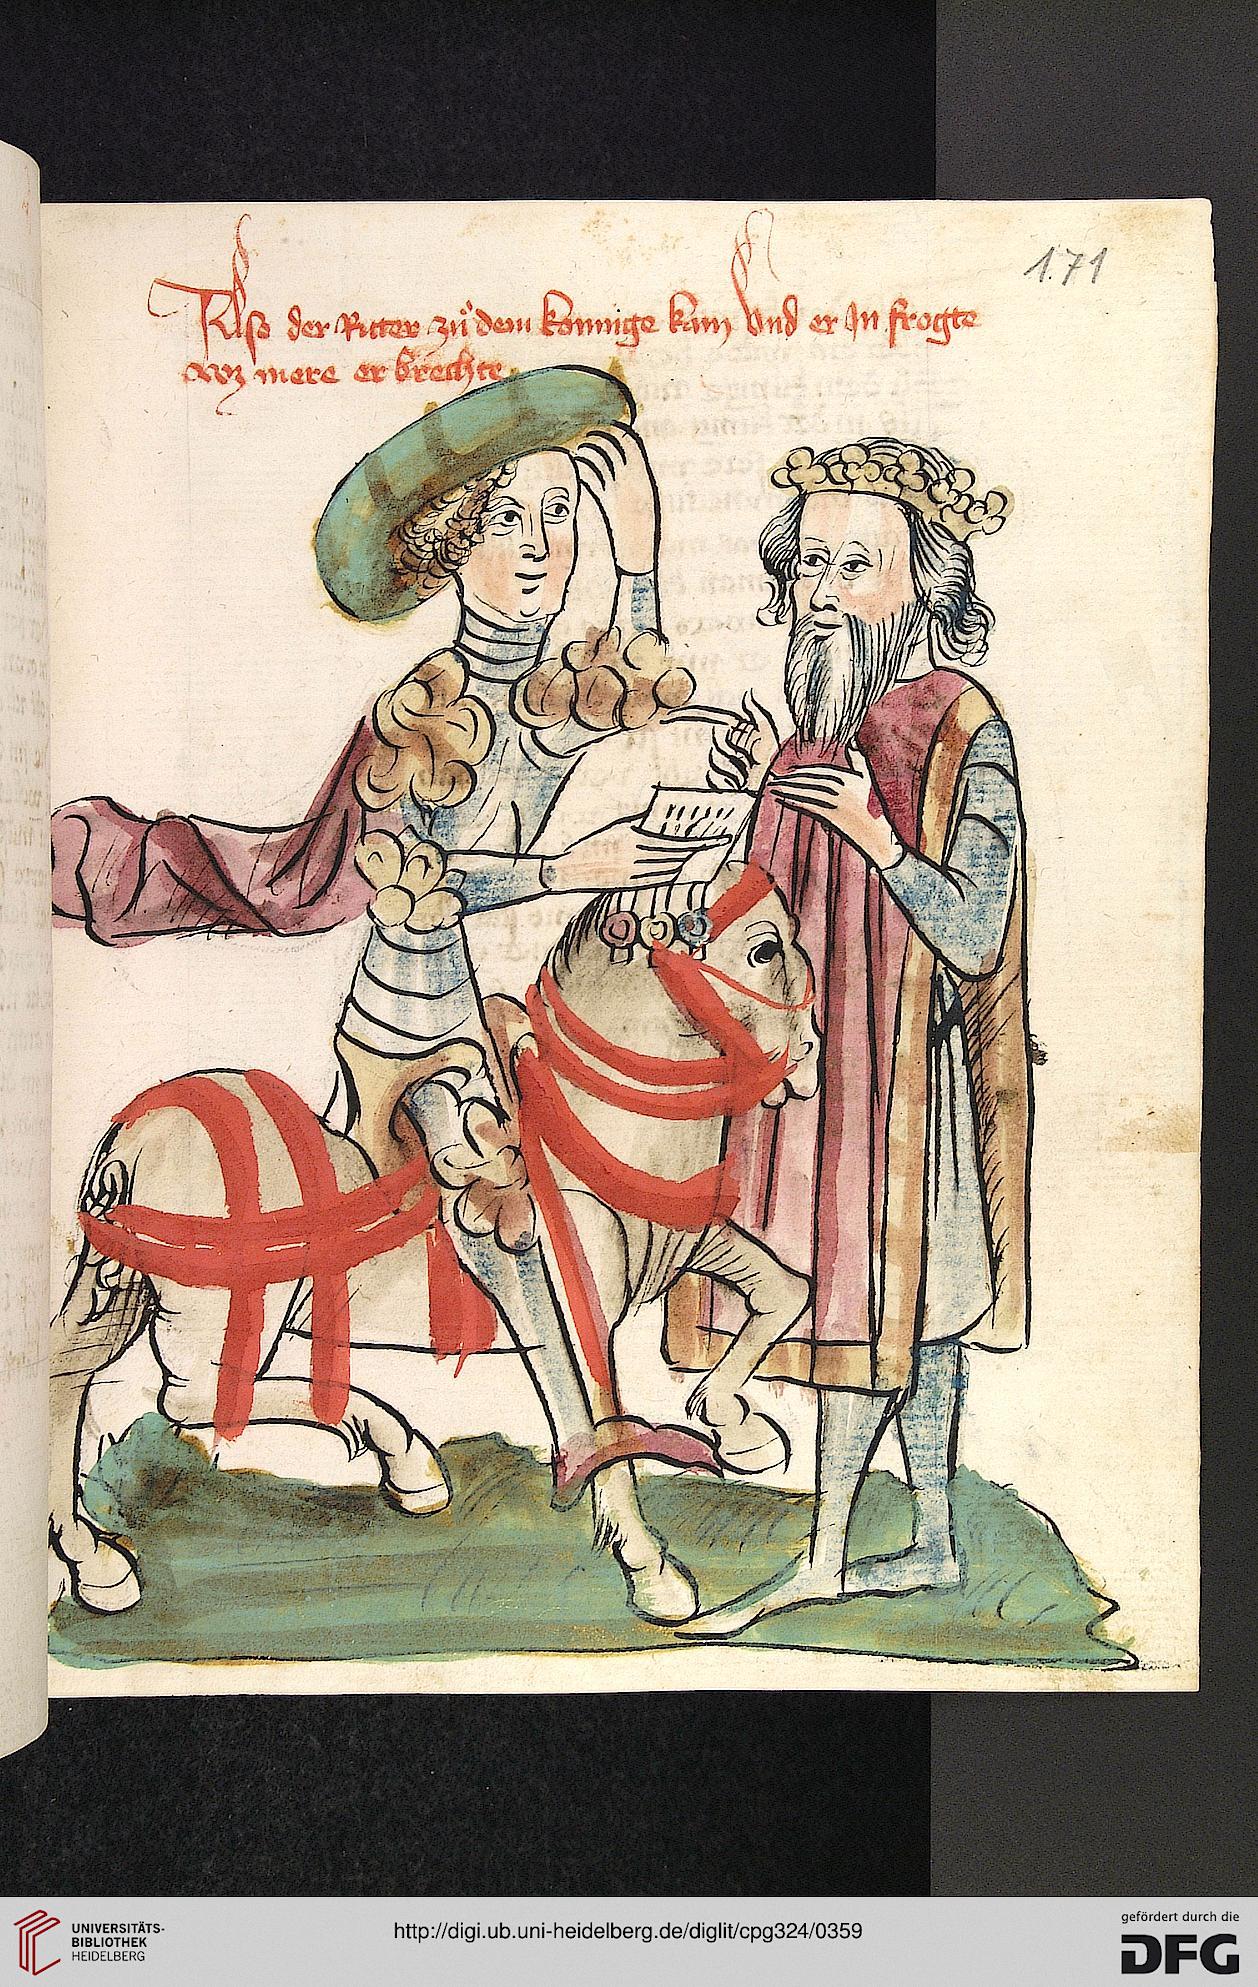 171
Also der Ritter zu dem konnige kam Vnd er In frogte
waz mere er brechte
UNIVERSITÄTS-
BIBLIOTHEK
HEIDELBERG
http://digi.ub.uni-heidelberg.de/diglit/cpg324/0359
gefördert durch die
DFG